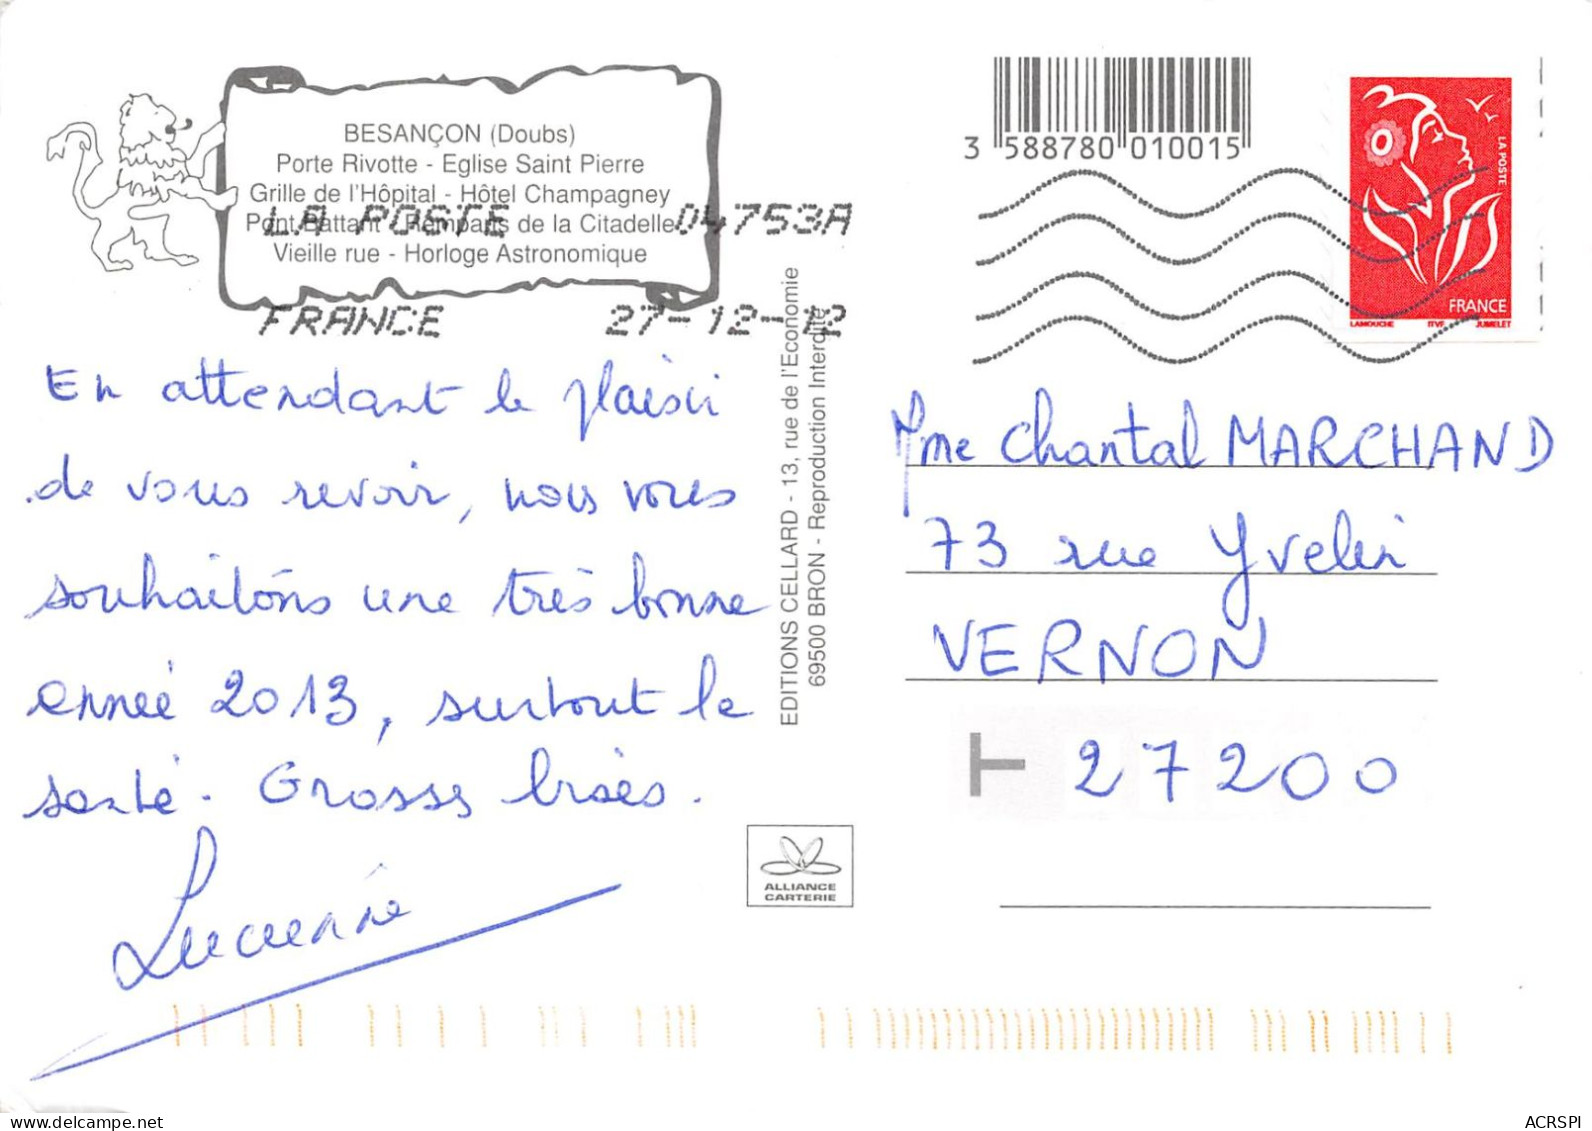 BESANÇON (Doubs)
Porte Rivotte - Eglise Saint Pierre
Grille de l'Hôpital - Hôtel Champagney
Pont Battant - Remparts de la Citadelle
Vieille rue - Horloge Astronomique
LA POSTE 04753A
FRANCE 27-12-12
3 588780 010015
LA POSTE
FRANCE
LAMOUCHE ITVF JUMELET
En attendant le plaisir
de vous revoir, nous vous
souhaitons une très bonne
année 2013, surtout la
santé. Grosses bises.
Lucienne
EDITIONS CELLARD - 13, rue de l'Economie
69500 BRON - Reproduction Interdite
Mme Chantal MARCHAND
73 rue Yvelin
VERNON
27200
ALLIANCE
CARTERIE
ACRSPI